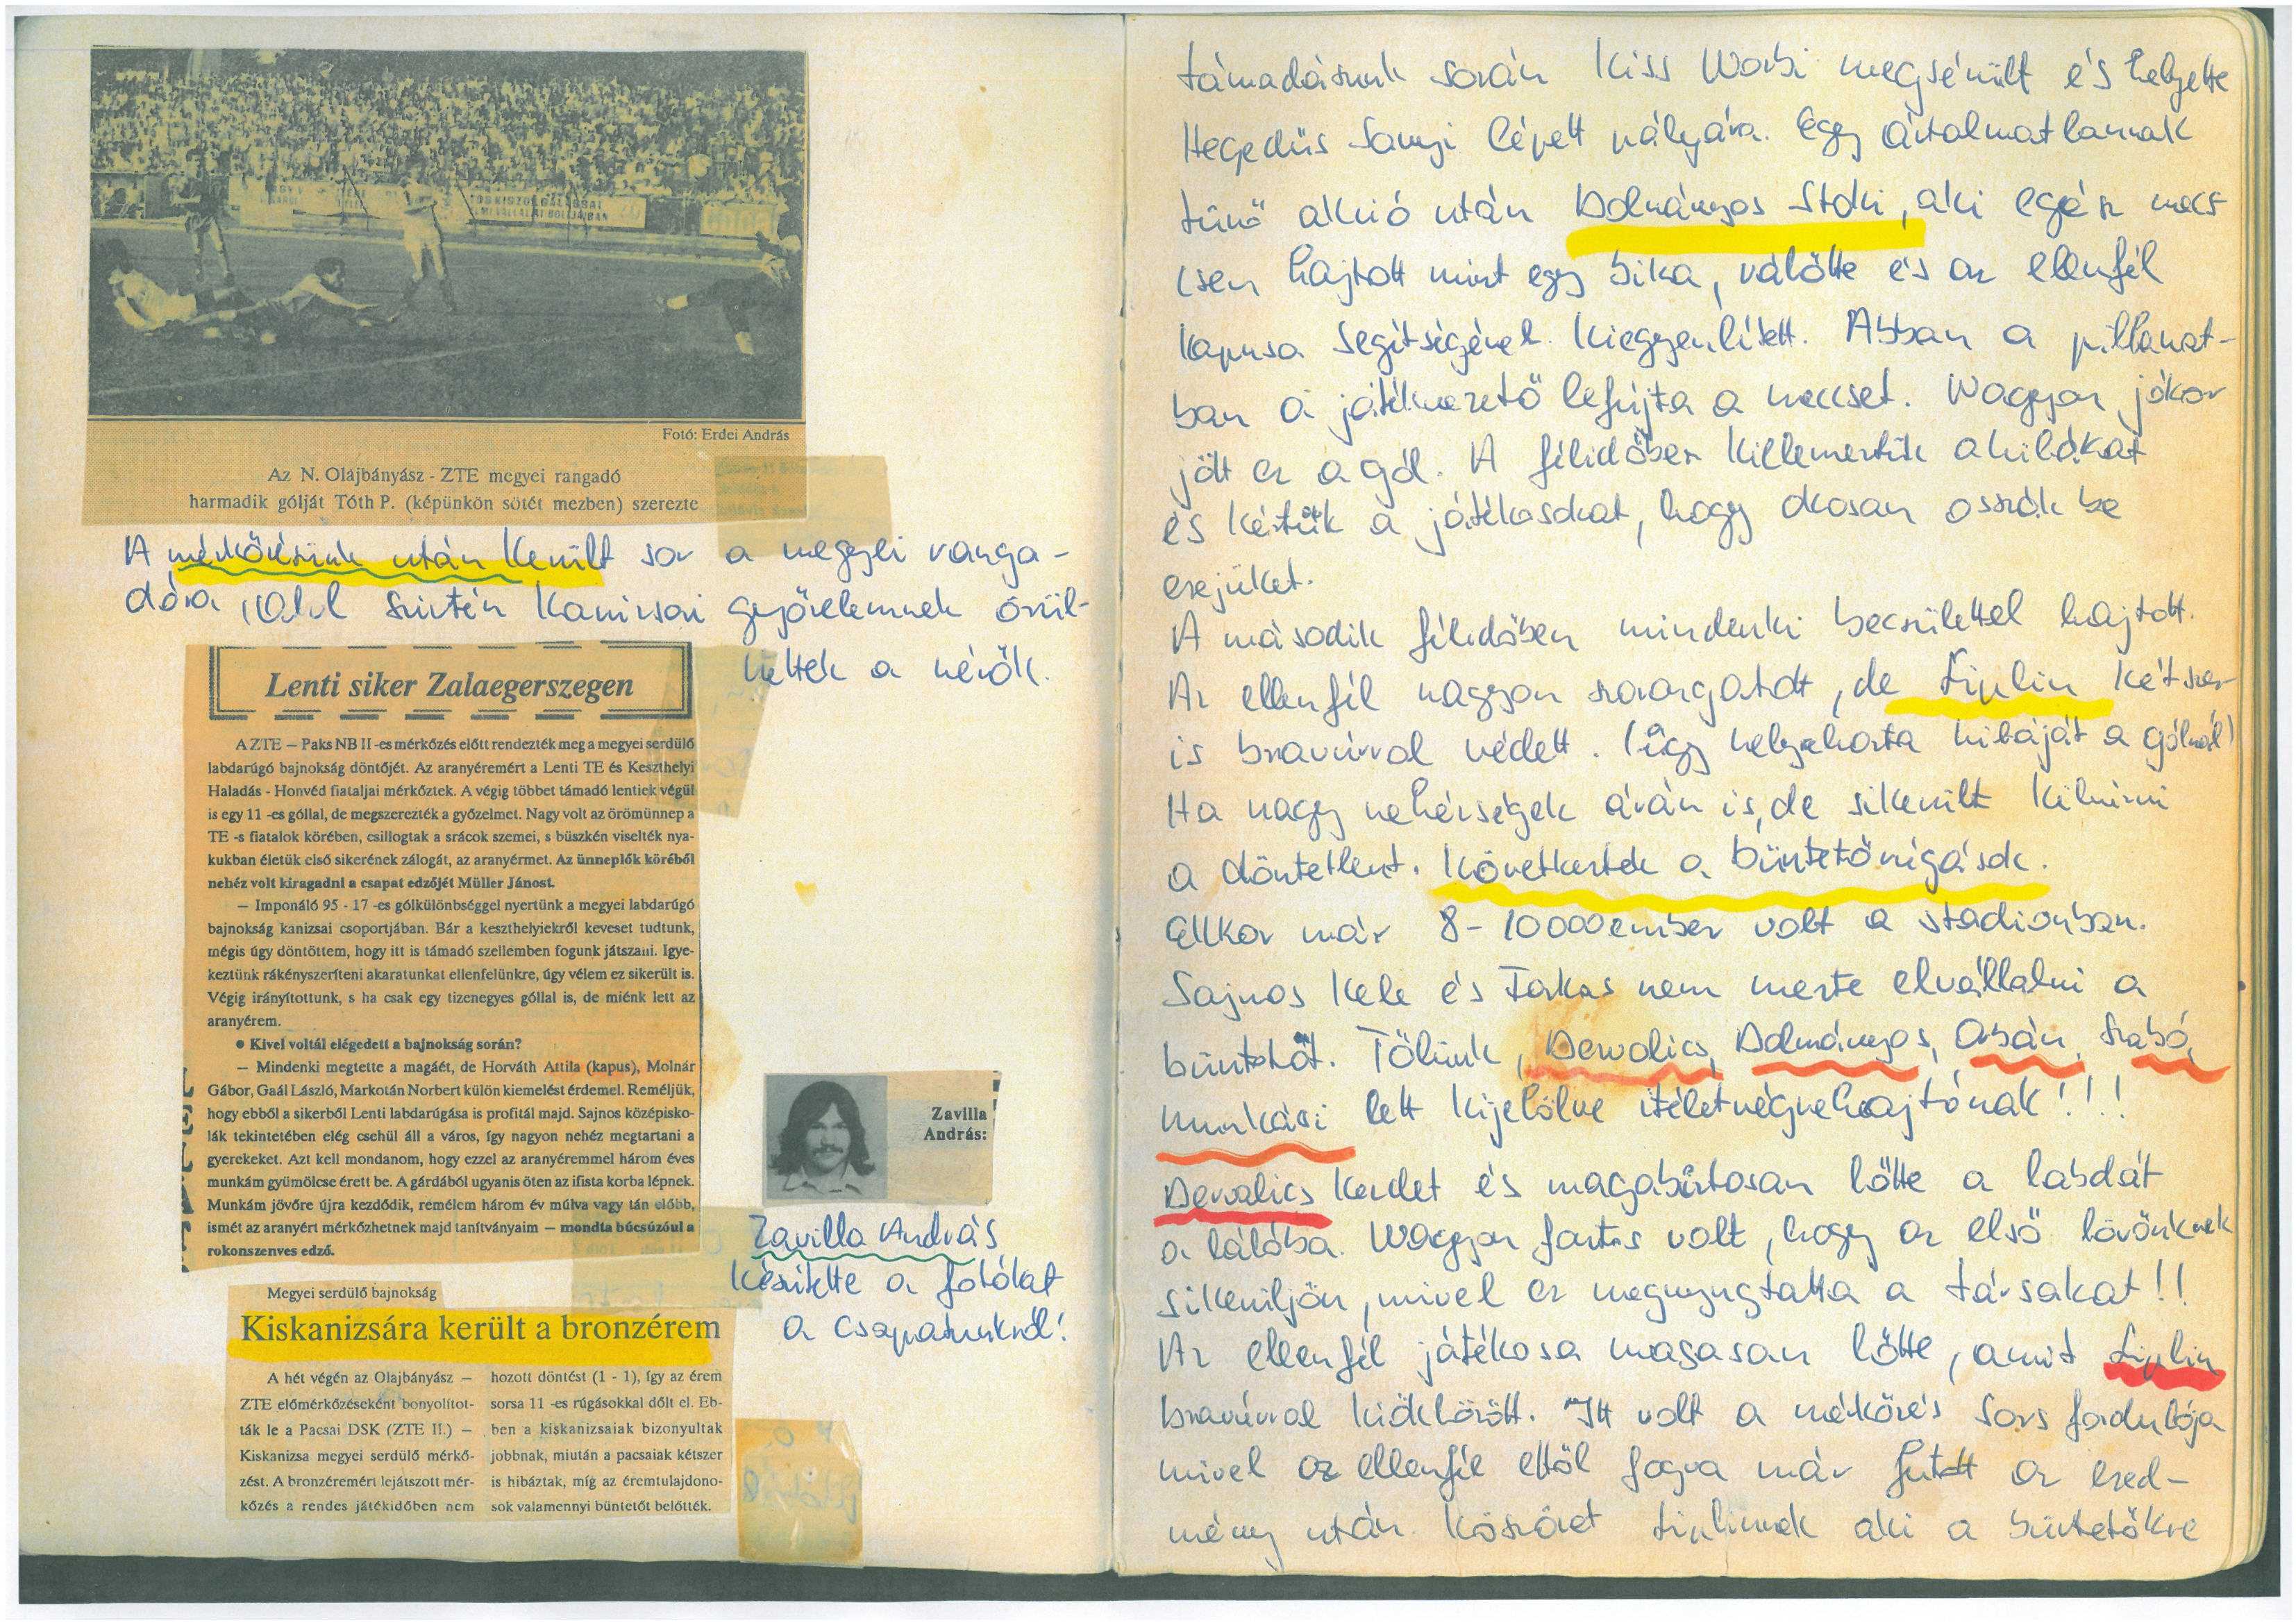 Fotó: Erdei András
Az N. Olajbányász - ZTE megyei rangadó
harmadik gólját Tóth P. (képünkön sötét mezben) szerezte
A mérkőzésünk után került sor a megyei ranga-
dóra, ahol szintén Kanizsai győzelemnek örül-
hettek a nézők.
Lenti siker Zalaegerszegen
A ZTE – Paks NB II -es mérkőzés előtt rendezték meg a megyei serdülő
labdarúgó bajnokság döntőjét. Az aranyéremért a Lenti TE és Keszthelyi
Haladás - Honvéd fiataljai mérkőztek. A végig többet támadó lentiek végül
is egy 11 -es góllal, de megszerezték a győzelmet. Nagy volt az örömünnep a
TE -s fiatalok körében, csillogtak a srácok szemei, s büszkén viselték nya-
kukban életük első sikerének zálogát, az aranyérmet. Az ünneplők köréből
nehéz volt kiragadni a csapat edzőjét Müller Jánost.
– Imponáló 95 - 17 -es gólkülönbséggel nyertünk a megyei labdarúgó
bajnokság kanizsai csoportjában. Bár a keszthelyiekről keveset tudtunk,
mégis úgy döntöttem, hogy itt is támadó szellemben fogunk játszani. Igye-
keztünk rákényszeríteni akaratunkat ellenfelünkre, úgy vélem ez sikerült is.
Végig irányítottunk, s ha csak egy tizenegyes góllal is, de miénk lett az
aranyérem.
● Kivel voltál elégedett a bajnokság során?
– Mindenki megtette a magáét, de Horváth Attila (kapus), Molnár
Gábor, Gaál László, Markotán Norbert külön kiemelést érdemel. Reméljük,
hogy ebből a sikerből Lenti labdarúgása is profitál majd. Sajnos középisko-
lák tekintetében elég csehül áll a város, így nagyon nehéz megtartani a
gyerekeket. Azt kell mondanom, hogy ezzel az aranyéremmel három éves
munkám gyümölcse érett be. A gárdából ugyanis öten az ifista korba lépnek.
Munkám jövőre újra kezdődik, remélem három év múlva vagy tán előbb,
ismét az aranyért mérkőzhetnek majd tanítványaim – mondta búcsúzóul a
rokonszenves edző.
Zavilla
András:
Zavilla András
készítette a fotókat
a csapatunkról!
Megyei serdülő bajnokság
Kiskanizsára került a bronzérem
A hét végén az Olajbányász –
ZTE előmérkőzéseként bonyolítot-
ták le a Pacsai DSK (ZTE II.) –
Kiskanizsa megyei serdülő mérkő-
zést. A bronzéremért lejátszott mér-
kőzés a rendes játékidőben nem
hozott döntést (1 - 1), így az érem
sorsa 11 -es rúgásokkal dőlt el. Eb-
ben a kiskanizsaiak bizonyultak
jobbnak, miután a pacsaiak kétszer
is hibáztak, míg az éremtulajdono-
sok valamennyi büntetőt belőtték.
támadásunk során Kiss Norbi megsérült és helyette
Hegedüs Sanyi lépett pályára. Egy ártalmatlannak
tünő akció után Dolmányos Stoki, aki egész mecs
csen hajtott mint egy bika, rálőtte és az ellenfél
kapusa segítségével kiegyenlített. Abban a pillanat-
ban a játékvezető lefújta a meccset. Nagyon jókor
jött ez a gól. A félidőben kielemeztük a hibákat
és kértük a játékosokat, hogy okosan osszák be
erejüket.
A második félidőben mindenki becsülettel hajtott.
Az ellenfél nagyon szorongatott, de Liplin kétszer
is bravúrral védett. (Így helyrehozta hibáját a gólnál)
Ha nagy nehézségek árán is, de sikerült kibírni
a döntetlent. Következtek a büntetőrúgások.
Ekkor már 8-10000 ember volt a stadionban.
Sajnos Kele és Farkas nem merte elvállalni a
büntetőt. Tőlünk, Dervalics, Dolmányos, Orbán, Szabó,
Munkácsi lett kijelölve itéletvégrehajtónak!!!
Dervalics kezdet és magabiztosan lőtte a labdát
a hálóba. Nagyon fontos volt, hogy az első lövőnknek
sikerüljön, mivel ez megnyugtatta a társakat!!
Az ellenfél játékosa magasan lőtte, amit Liplin
bravúrral kiöklözött. Itt volt a mérkőzés sors fordulója
mivel az ellenfél ettől fogva már futott az ered-
mény után. Köszönet Liplinnek aki a büntetőkre